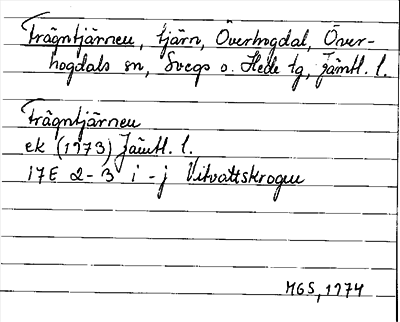 Trägntjärnen, tjärn, Överhogdal, Över-
hogdals sn, Svegs o. Hede tg, Jämtl. l.
Trägntjärnen
ek (1973) Jämtl. l.
17E 2-3 i-j Vitvattskrogen
MGS, 1974